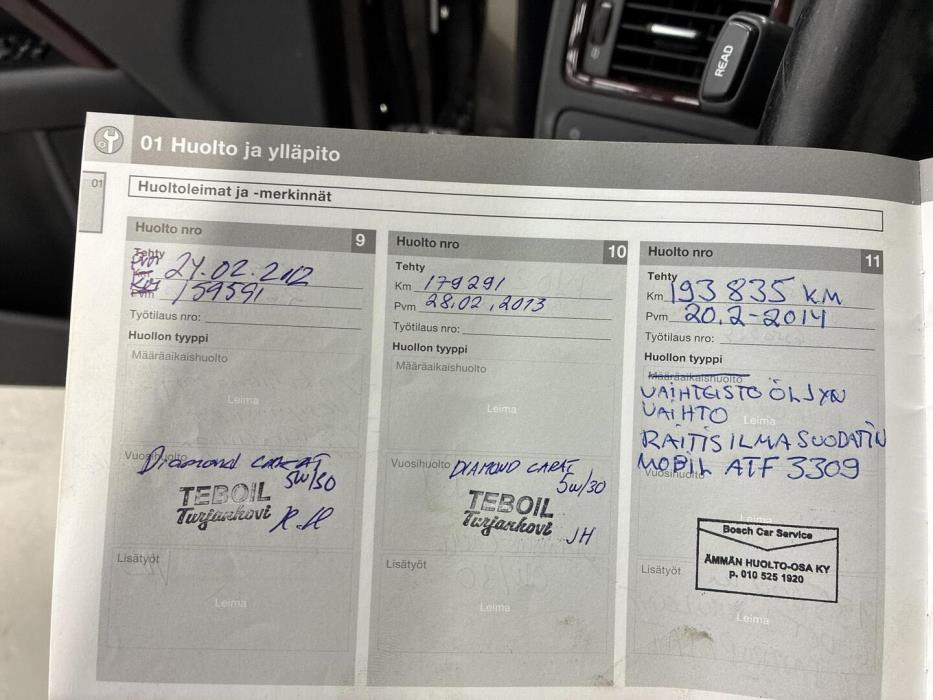 READ
01 Huolto ja ylläpito
01
Huoltoleimat ja -merkinnät
Huolto nro 9
Tehty
24.02.2012
159591
Pvm
Työtilaus nro:
Huollon tyyppi
Määräaikaishuolto
Leima
Vuosihuolto
Diamond CARAT
5W/30
TEBOIL
Turjankovi
Lisätyöt
Leima
Huolto nro 10
Tehty
Km 179291
Pvm 28.02.2013
Työtilaus nro:
Huollon tyyppi
Määräaikaishuolto
Leima
Vuosihuolto DIAMOND CARAT
5w/30
TEBOIL
Turjankovi
JH
Lisätyöt
Leima
Huolto nro 11
Tehty
Km 193 835 KM
Pvm 20.2-2014
Työtilaus nro:
Huollon tyyppi
Määräaikaishuolto
VAIHTEISTO ÖLJYN
VAIHTO
Leima
RAITIS ILMASUODATIN
MOBIL ATF 3309
Vuosihuolto
Leima
Bosch Car Service
ÄMMÄN HUOLTO-OSA KY
p. 010 525 1920
Lisätyöt
Leima